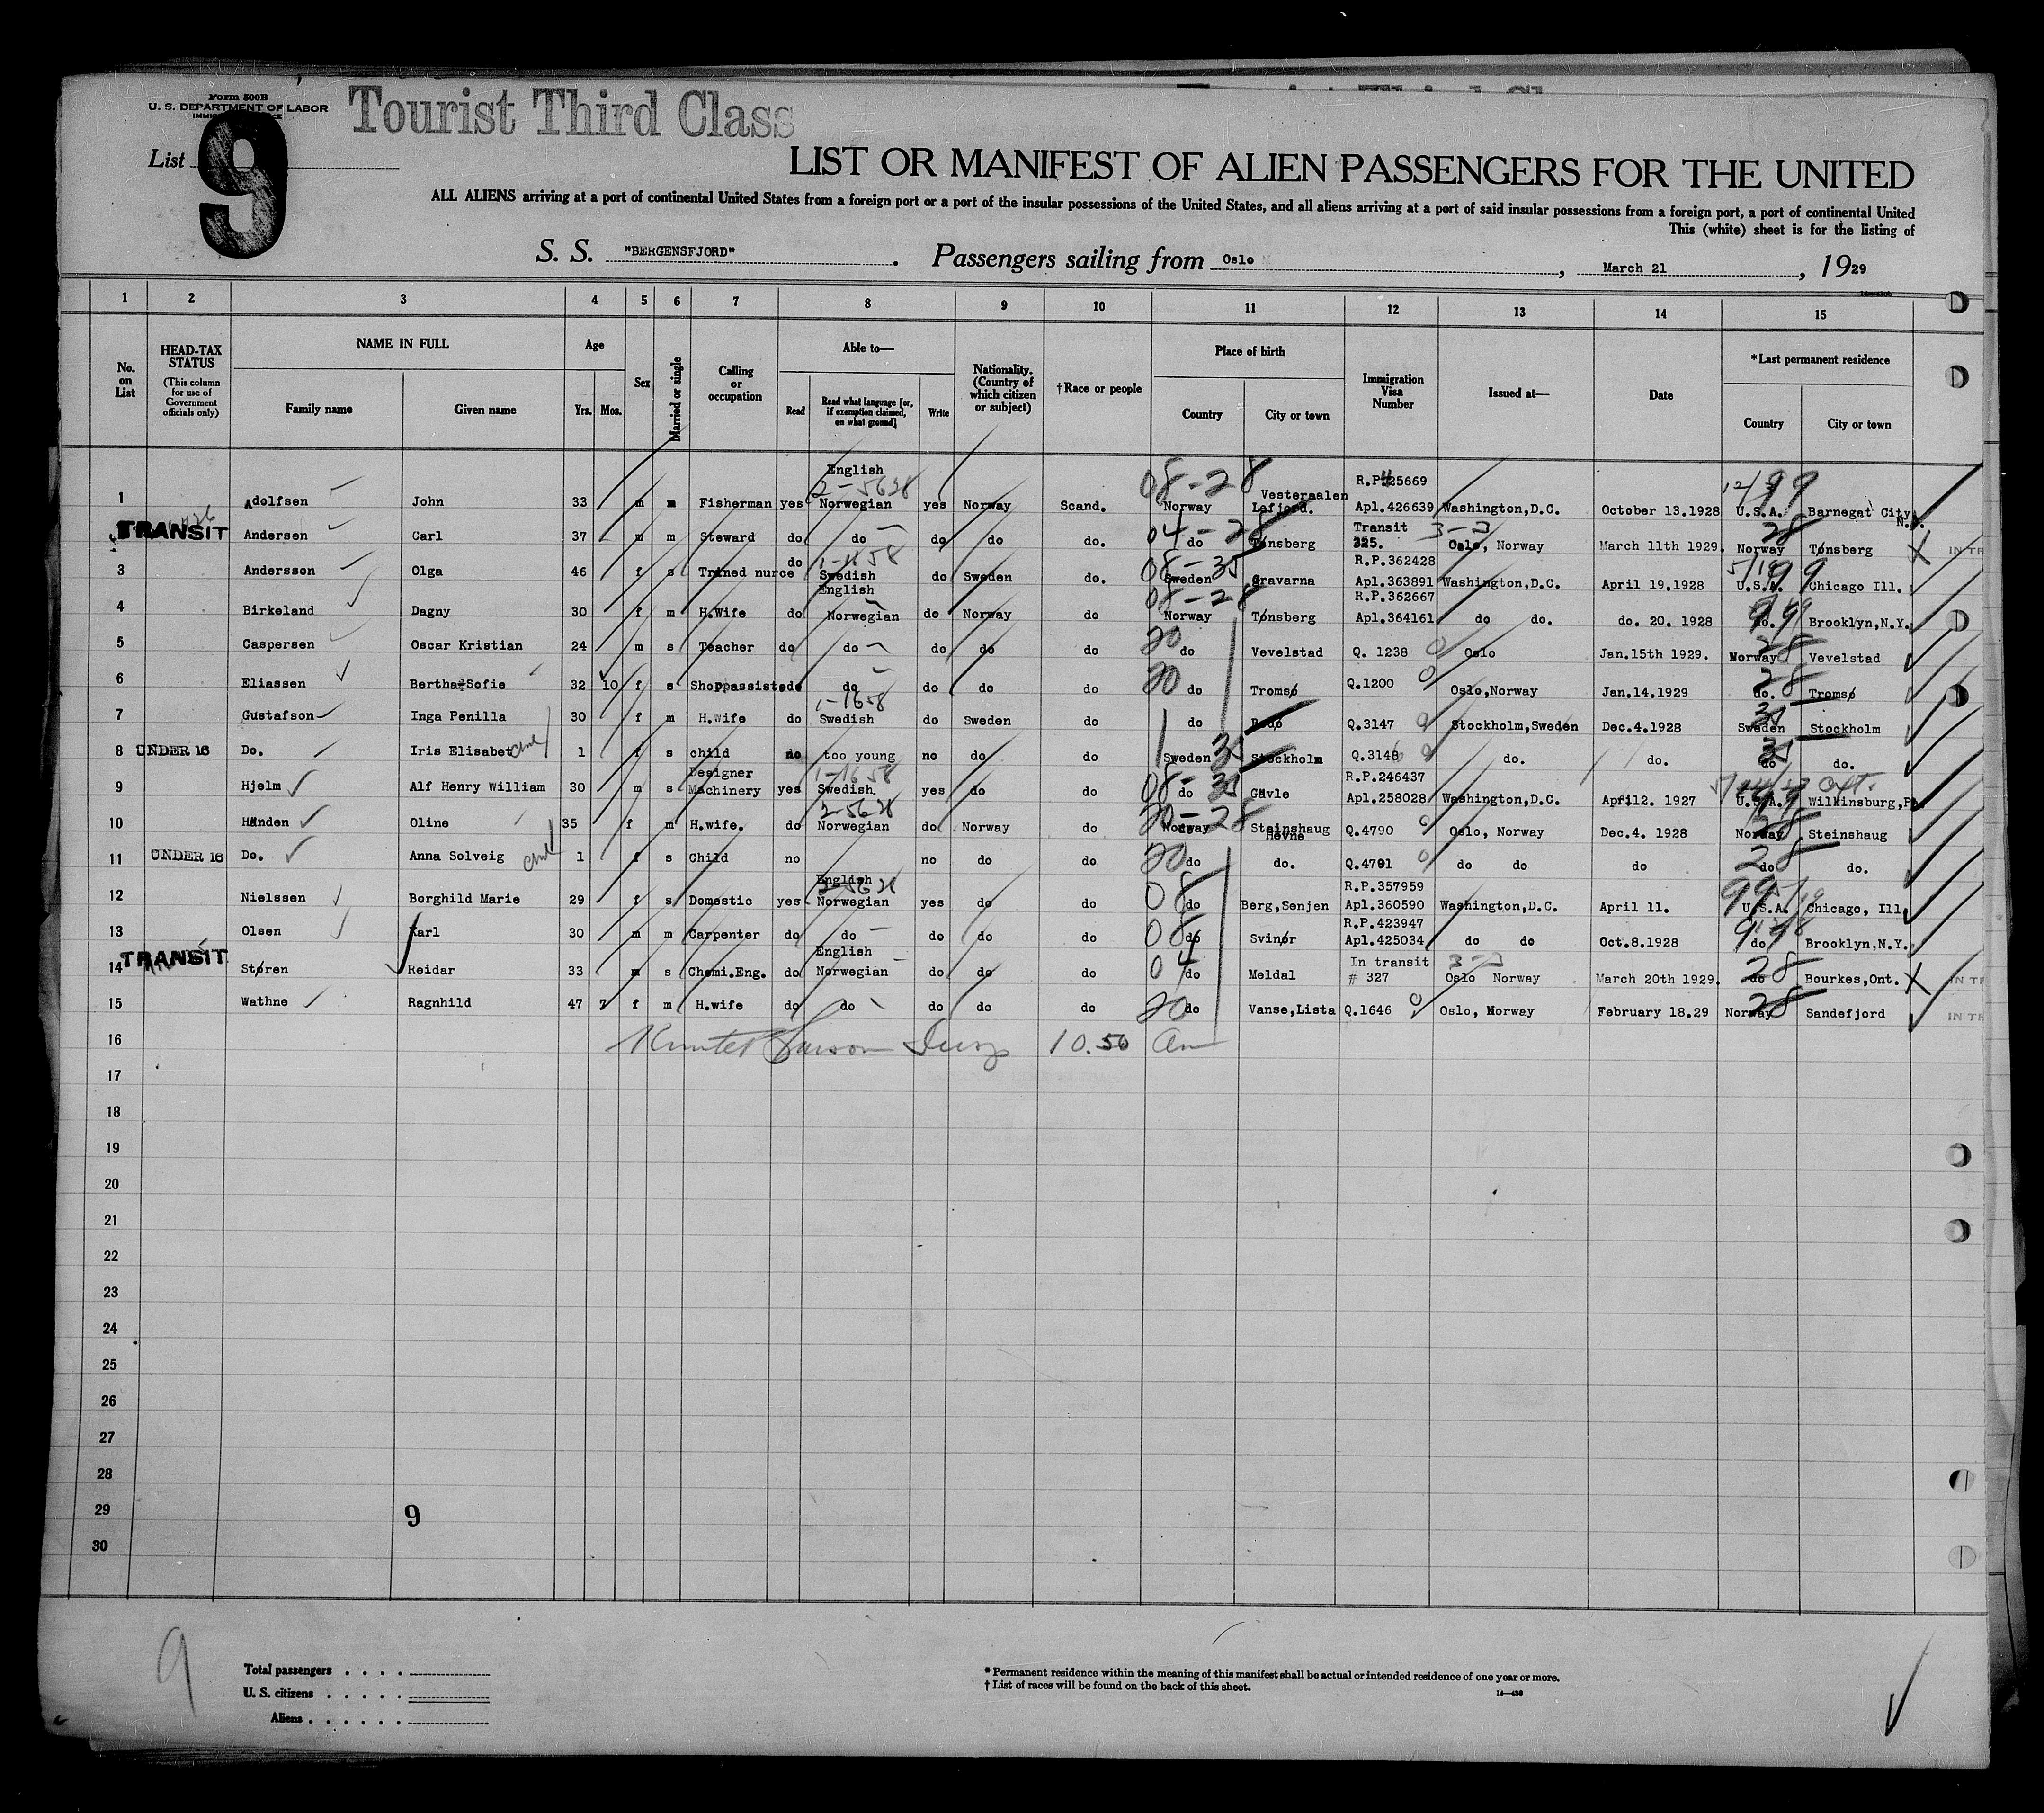 Form 500B
U. S. DEPARTMENT OF LABOR
Tourist Third Class
List 9
LIST OR MANIFEST OF ALIEN PASSENGERS FOR THE UNITED
ALL ALIENS arriving at a port of continental United States from a foreign port or a port of the insular possessions of the United States, and all aliens arriving at a port of said insular possessions from a foreign port, a port of continental United
This (white) sheet is for the listing of
S. S. "BERGENSFJORD" . Passengers sailing from Oslo , March 21 , 1929
1 2 3 4 5 6 7 8 9 10 11 12 13 14 15
No. on List
HEAD-TAX STATUS (This column for use of Government officials only)
NAME IN FULL Family name Given name
Age Yrs. Mos.
Sex
Married or single
Calling or occupation
Able to— Read Read what language [or, if exemption claimed, on what ground] Write
Nationality. (Country of which citizen or subject)
†Race or people
Place of birth Country City or town
Immigration Visa Number
Issued at—
Date
*Last permanent residence Country City or town
English 2-5628 08-28 Vesteraalen R.P.425669 12/ 99
1 Adolfsen John 33 m m Fisherman yes Norwegian yes Norway Scand. Norway Lafjord. Apl.426639 Washington,D.C. October 13.1928 U.S.A. Barnegat City, N.J.
TRANSIT Andersen Carl 37 m m Steward do do do do do. 04-28 do Tønsberg Transit 325. 3-3 Oslo, Norway March 11th 1929. 28 Norway Tønsberg
3 Andersson Olga 46 f s Trained nurce do 1-1658 Swedish do Sweden do. 08-35 Sweden Gravarna R.P.362428 Apl.363891 Washington,D.C. April 19.1928 99 U.S.A. Chicago Ill.
4 Birkeland Dagny 30 f m H.Wife do English Norwegian do Norway do 08-28 Norway Tønsberg R.P.362667 Apl.364161 do do. do. 20. 1928 do. Brooklyn,N.Y.
5 Caspersen Oscar Kristian 24 m s Teacher do do do do do 20 do Vevelstad Q. 1238 Oslo Jan.15th 1929. 28 Norway Vevelstad
6 Eliassen Bertha Sofie 32 10 f s Shoppassiste do do do do do 20 do Tromsø Q.1200 Oslo,Norway Jan.14.1929 28 do. Tromsø
7 Gustafson Inga Penilla 30 f m H.wife do 1-1658 Swedish do Sweden do do Bodø Q.3147 Stockholm,Sweden Dec.4.1928 35 Sweden Stockholm
8 UNDER 16 Do. Iris Elisabet 1 f s child no too young no do do Sweden 35 Stockholm Q.3148 do. do. 35 do do.
9 Hjelm Alf Henry William 30 m s Designer Machinery yes 1-1658 Swedish. yes do do 08-35 do Gävle R.P.246437 Apl.258028 Washington,D.C. April2. 1927 U.S.A. Wilkinsburg,Pa.
10 Handen Oline 35 f m H.wife. do 2-5628 Norwegian do. Norway do 20-28 Norway Steinshaug Hevne Q.4790 Oslo, Norway Dec.4. 1928 28 Norway Steinshaug
11 UNDER 16 Do. Anna Solveig 1 f s Child no no do do 20 do do. Q.4791 do do do 28 do do.
12 Nielssen Borghild Marie 29 f s Domestic yes English Norwegian yes do do 08 do Berg,Senjen R.P.357959 Apl.360590 Washington,D.C. April 11. 99 U.S.A. Chicago, Ill.
13 Olsen Karl 30 m m Carpenter do do do do do 08 do Svinør R.P.423947 Apl.425034 do do Oct.8.1928 do Brooklyn,N.Y.
TRANSIT
14 Støren Reidar 33 m s Chemi.Eng. do English Norwegian do do do 04 do Meldal In transit # 327 3-3 Oslo Norway March 20th 1929. 28 do Bourkes,Ont.
15 Wathne Ragnhild 47 7 f m H.wife do do do do do 20 do Vanse,Lista Q.1646 Oslo, Norway February 18.29 28 Norway Sandefjord
16 10.50 am
17
18
19
20
21
22
23
24
25
26
27
28
29 9
30
9
Total passengers
U. S. citizens
Aliens
* Permanent residence within the meaning of this manifest shall be actual or intended residence of one year or more.
† List of races will be found on the back of this sheet.
14—430